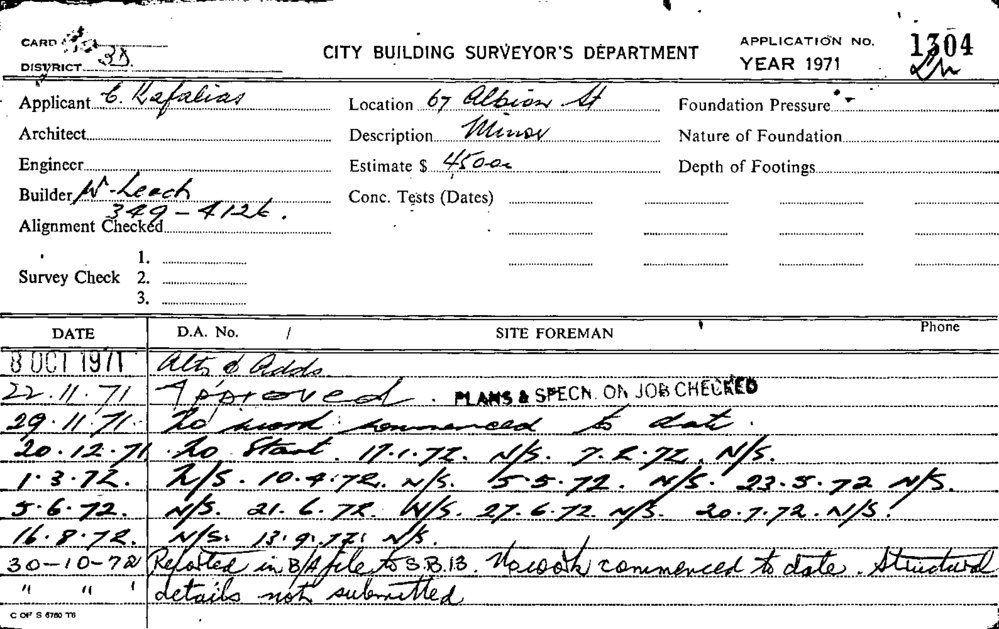 CARD
CITY BUILDING SURVEYOR'S DEPARTMENT
APPLICATION NO. 1304
DISTRICT 3D.
YEAR 1971
Applicant C. Kafalias
Location 67 Albion St
Foundation Pressure
Architect
Description Minor
Nature of Foundation
Engineer
Estimate $ 4500
Depth of Footings
Builder W. Leech
Conc. Tests (Dates)
349-4126.
Alignment Checked
1.
Survey Check 2.
3.
DATE D.A. No. / SITE FOREMAN Phone
8 OCT 1971 Alts & Adds
22.11.71 Approved. PLANS & SPECN. ON JOB CHECKED
29.11.71. No work commenced to date.
20.12.71 No Start. 17.1.72. N/S. 7.2.72. N/S.
1.3.72. N/S. 10.4.72. N/S. 5.5.72. N/S. 23.5.72 N/S.
5.6.72. N/S. 21.6.72. N/S. 27.6.72. N/S. 20.7.72. N/S.
16.8.72. N/S. 13.9.72. N/S.
30-10-72 Reported in B/A file to S.B.13. No work commenced to date. Structural
" " ' details not submitted
C OF S 6780 T6